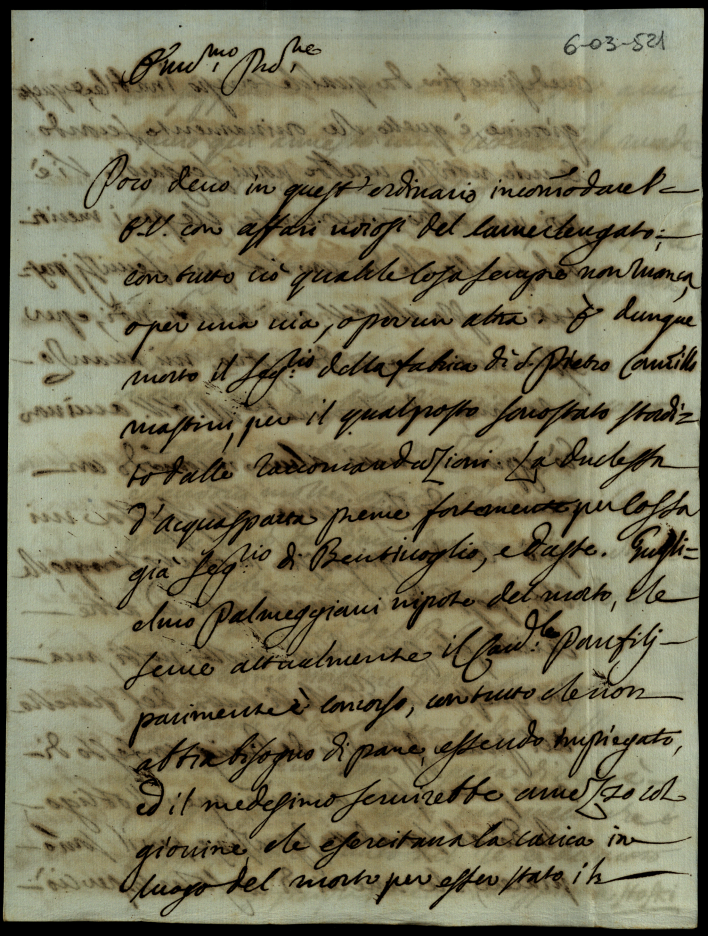 6-03-521
Em.mo Pad.ne
Poco devo in quest'ordinario incomodare l'=
E.V. con affari noiosi del Camerlengato;
con tutto ciò qualche cosa sempre non manca,
o per una via, o per un altra. È dunque
morto il Seg.rio della fabrica di S. Pietro Camillo
mastini, per il qual posto sono stato stordi=
to dalle raccomandazioni. La Duchessa
d'acquasparta preme fortemente per Cossa
già Seg.rio di Bentivoglio, e d'aste. Gugli=
elmo Palmeggiani nipote del morto, che
serve attualmente il Card.le Panfilj
parimente è concorso, con tutto che non
abbia bisogno di pane, essendo impiegato,
ed il medesimo servirebbe a mezzo col
giovine che esercitava la carica in
luogo del morto per esser stato il